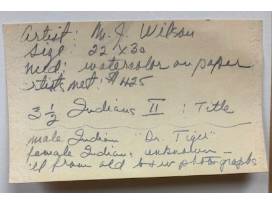 Artist: M. J. Wilson
Size: 22 x 30
Med: watercolor on paper
net: $425
3 1/2 Indians II : Title
male Indian "Dr. Tiger"
female Indian, unknown —
from old b+w photographs